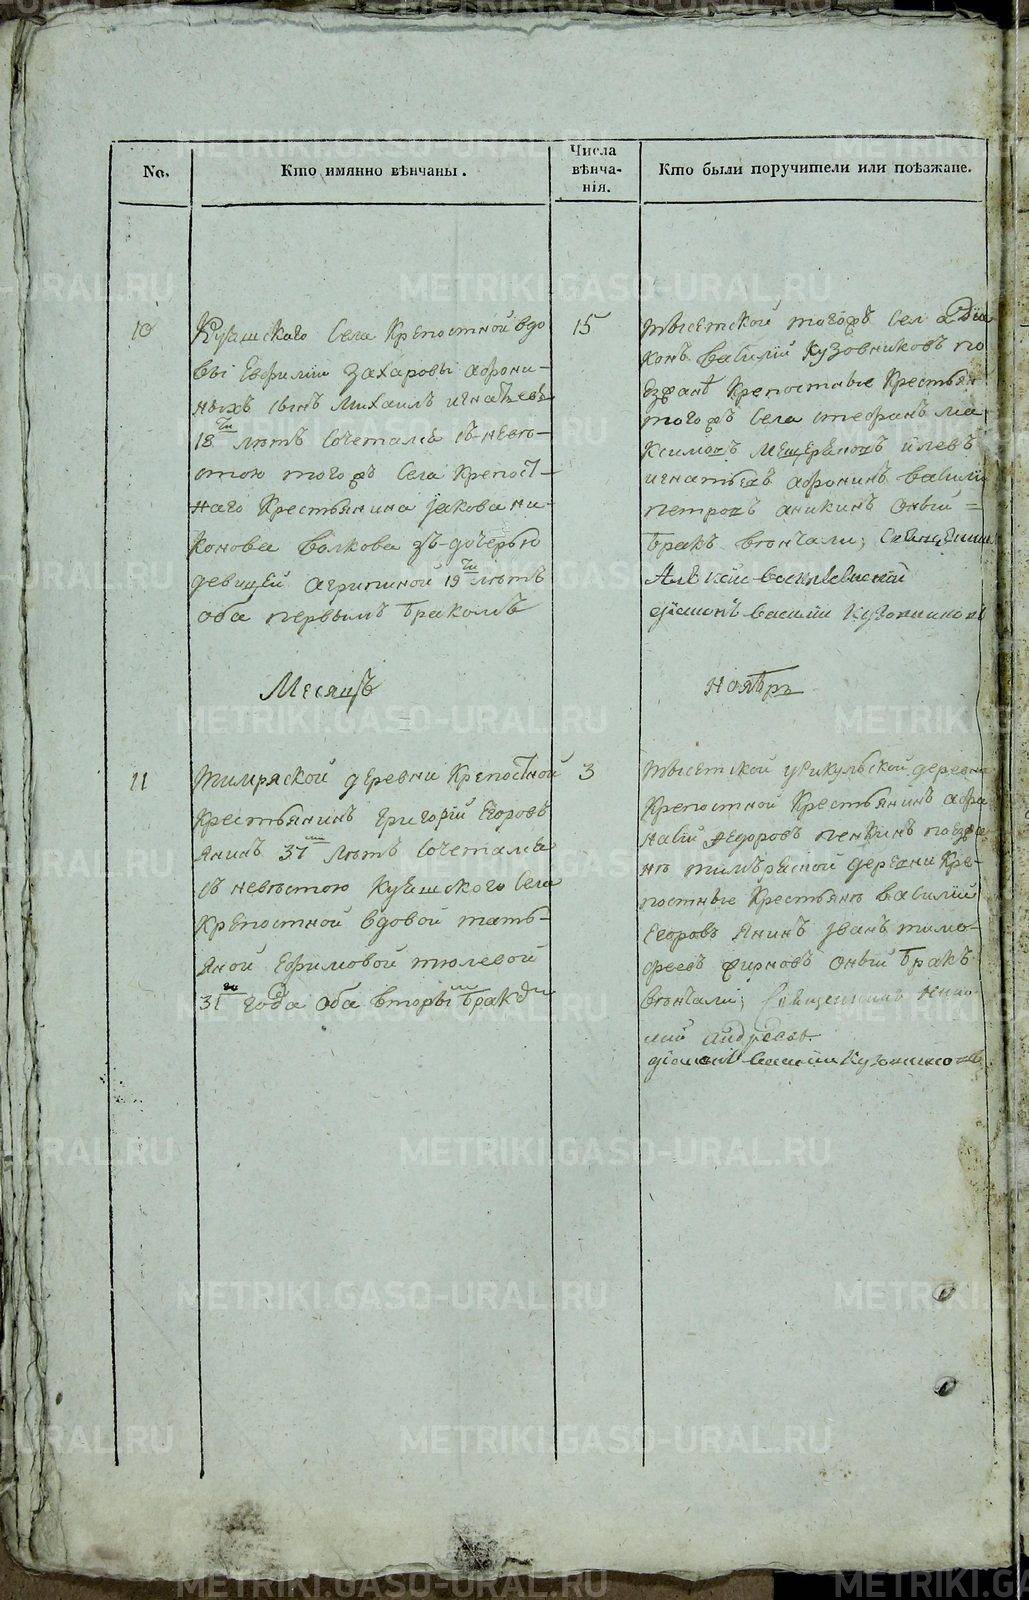 No.
Кто имянно вѣнчаны.
Числа
вѣнча-
нія.
Кто были поручители или поѣзжане.
10
Куяшскаго Села Крепостной вдо
вы Евфиміи Захаровы афони-
ныхъ сынъ Михаилъ игнатьевъ
18ти лѣтъ Сочетался съ невѣ-
стою тогожъ Села Крепост-
наго Крестьянина Якова ни-
конова Волкова зъ-дочерью
девицей агрипиной 19ти лѣтъ
оба первымъ бракомъ
15
тысетской тогожъ Села Діа
конъ Василій Кузовниковъ по
езжанѣ Крепостные Крестьян
тогожъ Села стефанъ ма
ксимовъ игнатьевъ афонинъ Василій
петровъ аникинъ Оный =
бракъ вѣнчали; Священник
діаконъ Василіи Кузовниковъ
Месяцъ
Ноябрь
11
Тимряской деревни Крепостной
Крестьянинъ григорій Егоровъ
Янинъ 37ми лѣтъ Сочетался
съ невѣстою Куяшскаго Села
Крепостной вдовой тать-
яной Ефимовой тюлевой
31го года Оба вторы бракомъ
3
тысетской деревни
Крепостной Крестьянинъ афа
насій федоровъ поезжа
нѣ тимряской деревни Кре-
постные Крестьянѣ Василій
Егоровъ Янинъ Иванъ тимо-
феевъ Оный бракъ
вѣнчали; Священникъ Нико-
лай Андреевъ
діаконъ Василіи Кузовниковъ
METRIKI.GASO-URAL.RU